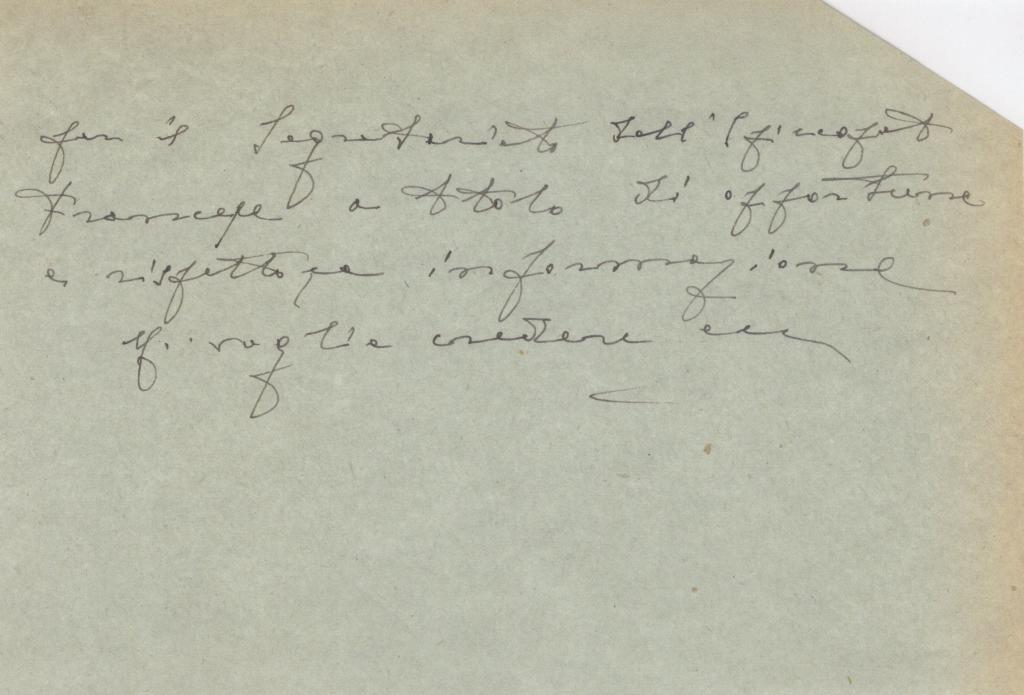 per il Segretariato dell'Episcopat
Francese a titolo di opportuna
e rispettosa informazione
Mi voglia credere ecc